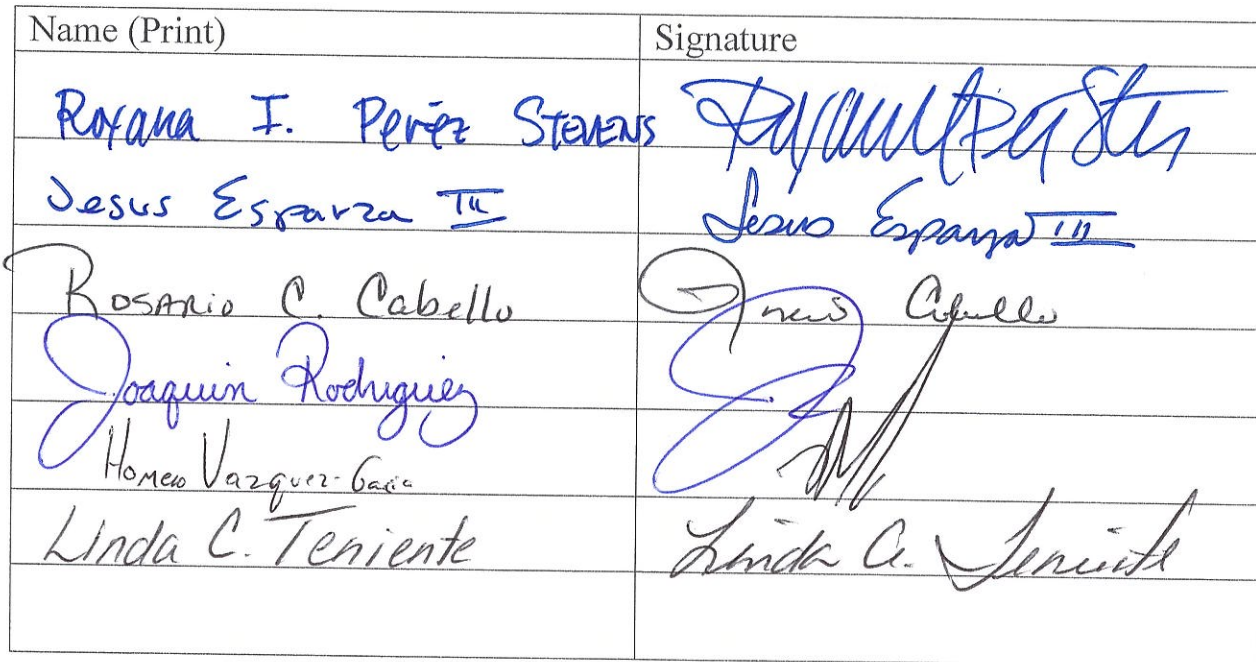 Name (Print) Signature
Roxana I. Peréz Stevens
Jesus Esparza III Jesús Esparza III
Rosario C. Cabello Cabello
Joaquin Rodriguez
Homero Vazquez-Garcia
Linda C. Teniente Linda C. Teniente